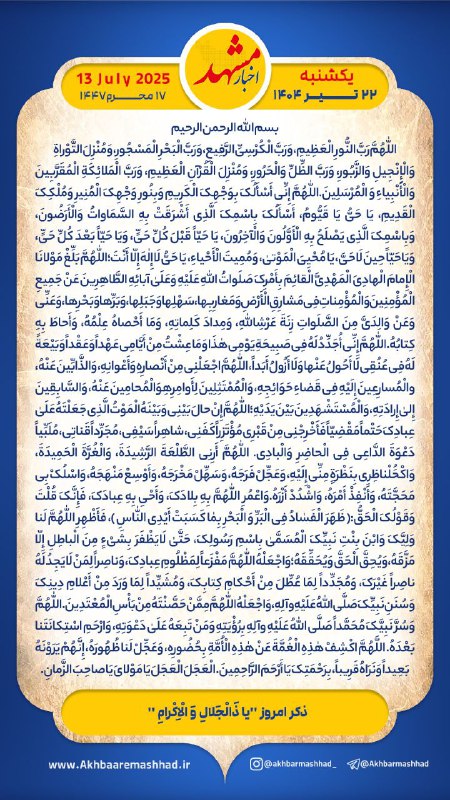 اخبار مشهد
یکشنبه
۲۲ تیر ۱۴۰۴
13 July 2025
۱۷ محرم ۱۴۴۷
بسم الله الرحمن الرحیم
اللَّهُمَّ رَبَّ النُّورِ الْعَظِیمِ، وَرَبَّ الْکُرْسِیِّ الرَّفِیعِ، وَرَبَّ الْبَحْرِ الْمَسْجُورِ، وَمُنْزِلَ التَّوْراةِ
وَالْإِنْجِیلِ وَالزَّبُورِ وَرَبَّ الظِّلِّ وَالْحَرُورِ، وَمُنْزِلَ الْقُرْآنِ الْعَظِیمِ، وَرَبَّ الْمَلائِکَةِ الْمُقَرَّبِینَ
وَالْأَنْبِیاءِ وَالْمُرْسَلِینَ، اللَّهُمَّ إِنِّی أَسْأَلُکَ بِوَجْهِکَ الْکَرِیمِ وَبِنُورِ وَجْهِکَ الْمُنِیرِ وَمُلْکِکَ
الْقَدِیمِ، یَا حَیُّ یَا قَیُّومُ، أَسْأَلُکَ بِاسْمِکَ الَّذِی أَشْرَقَتْ بِهِ السَّمَاوَاتُ وَالْأَرَضُونَ،
وَبِاسْمِکَ الَّذِی یَصْلَحُ بِهِ الْأَوَّلُونَ وَالْآخِرُونَ، یَا حَیّاً قَبْلَ کُلِّ حَیٍّ، وَیَا حَیّاً بَعْدَ کُلِّ حَیٍّ،
وَیَا حَیّاً حِینَ لَا حَیَّ، یَا مُحْیِیَ الْمَوْتَیٰ، وَمُمِیتَ الْأَحْیاءِ، یَا حَیُّ لَا إِلٰهَ إِلّا أَنْتَ؛ اللَّهُمَّ بَلِّغْ مَوْلانَا
الْإِمامَ الْهادِیَ الْمَهْدِیَّ الْقائِمَ بِأَمْرِکَ صَلَواتُ اللهِ عَلَیْهِ وَعَلَیٰ آبائِهِ الطَّاهِرِینَ عَنْ جَمِیعِ
الْمُؤْمِنِینَ وَالْمُؤْمِناتِ فِی مَشارِقِ الْأَرْضِ وَمَغارِبِها، سَهْلِها وَجَبَلِها، وَبَرِّها وَبَحْرِها، وَعَنِّی
وَعَنْ وَالِدَیَّ مِنَ الصَّلَواتِ زِنَةَ عَرْشِ اللهِ، وَمِدادَ کَلِماتِهِ، وَمَا أَحْصاهُ عِلْمُهُ، وَأَحَاطَ بِهِ
کِتابُهُ. اللَّهُمَّ إِنِّی أُجَدِّدُ لَهُ فِی صَبِیحَةِ یَوْمِی هٰذَا وَمَا عِشْتُ مِنْ أَیَّامِی عَهْداً وَعَقْداً وَبَیْعَةً
لَهُ فِی عُنُقِی لَا أَحُولُ عَنْها وَلَا أَزُولُ أَبَداً، اللَّهُمَّ اجْعَلْنِی مِنْ أَنْصارِهِ وَأَعْوانِهِ، وَالذَّابِّینَ عَنْهُ،
وَالْمُسارِعِینَ إِلَیْهِ فِی قَضاءِ حَوَائِجِهِ، وَالْمُمْتَثِلِینَ لِأَوامِرِهِ وَالْمُحامِینَ عَنْهُ، وَالسَّابِقِینَ
إِلیٰ إِرادَتِهِ، وَالْمُسْتَشْهَدِینَ بَیْنَ یَدَیْهِ؛ اللَّهُمَّ إِنْ حالَ بَیْنِی وَبَیْنَهُ الْمَوْتُ الَّذِی جَعَلْتَهُ عَلَیٰ
عِبادِکَ حَتْماً مَقْضِیّاً فَأَخْرِجْنِی مِنْ قَبْرِی مُؤْتَزِراً کَفَنِی، شاهِراً سَیْفِی، مُجَرِّداً قَناتِی، مُلَبِّیاً
دَعْوَةَ الدَّاعِی فِی الْحاضِرِ وَالْبادِی. اللَّهُمَّ أَرِنِی الطَّلْعَةَ الرَّشِیدَةَ، وَالْغُرَّةَ الْحَمِیدَةَ،
وَاکْحُلْ ناظِرِی بِنَظْرَةٍ مِنِّی إِلَیْهِ، وَعَجِّلْ فَرَجَهُ، وَسَهِّلْ مَخْرَجَهُ، وَأَوْسِعْ مَنْهَجَهُ، وَاسْلُکْ بِی
مَحَجَّتَهُ، وَأَنْفِذْ أَمْرَهُ، وَاشْدُدْ أَزْرَهُ، وَاعْمُرِ اللَّهُمَّ بِهِ بِلادَکَ، وَأَحْیِ بِهِ عِبادَکَ، فَإِنَّکَ قُلْتَ
وَقَوْلُکَ الْحَقُّ: (ظَهَرَ الْفَسادُ فِی الْبَرِّ وَ الْبَحْرِ بِمَا کَسَبَتْ أَیْدِی النَّاسِ)، فَأَظْهِرِ اللَّهُمَّ لَنا
وَلِیَّکَ وَابْنَ بِنْتِ نَبِیِّکَ الْمُسَمَّیٰ بِاسْمِ رَسُولِکَ، حَتَّیٰ لَا یَظْفَرَ بِشَیْءٍ مِنَ الْباطِلِ إِلّا
مَزَّقَهُ، وَیُحِقَّ الْحَقَّ وَیُحَقِّقَهُ؛ وَاجْعَلْهُ اللَّهُمَّ مَفْزَعاً لِمَظْلُومِ عِبادِکَ، وَناصِراً لِمَنْ لَا یَجِدُ لَهُ
ناصِراً غَیْرَکَ، وَمُجَدِّداً لِمَا عُطِّلَ مِنْ أَحْکامِ کِتابِکَ، وَمُشَیِّداً لِمَا وَرَدَ مِنْ أَعْلامِ دِینِکَ
وَسُنَنِ نَبِیِّکَ صَلَّی اللهُ عَلَیْهِ وَآلِهِ، وَاجْعَلْهُ اللَّهُمَّ مِمَّنْ حَصَّنْتَهُ مِنْ بَأْسِ الْمُعْتَدِینَ. اللَّهُمَّ
وَسُرَّ نَبِیَّکَ مُحَمَّداً صَلَّی اللهُ عَلَیْهِ وَآلِهِ بِرُؤْیَتِهِ وَمَنْ تَبِعَهُ عَلَیٰ دَعْوَتِهِ، وَارْحَمِ اسْتِکانَتَنا
بَعْدَهُ. اللَّهُمَّ اکْشِفْ هٰذِهِ الْغُمَّةَ عَنْ هٰذِهِ الْأُمَّةِ بِحُضُورِهِ، وَعَجِّلْ لَنا ظُهُورَهُ، إِنَّهُمْ یَرَوْنَهُ
بَعِیداً وَنَرَاهُ قَرِیباً، بِرَحْمَتِکَ یَا أَرْحَمَ الرَّاحِمِینَ. الْعَجَلَ الْعَجَلَ یَا مَوْلایَ یَا صاحِبَ الزَّمانِ.
ذکر امروز "یا ذَالْجَلالِ وَ الْاِکْرامِ"
www.Akhbaaremashhad.ir
@akhbarmashhad_
@Akhbarmashhad